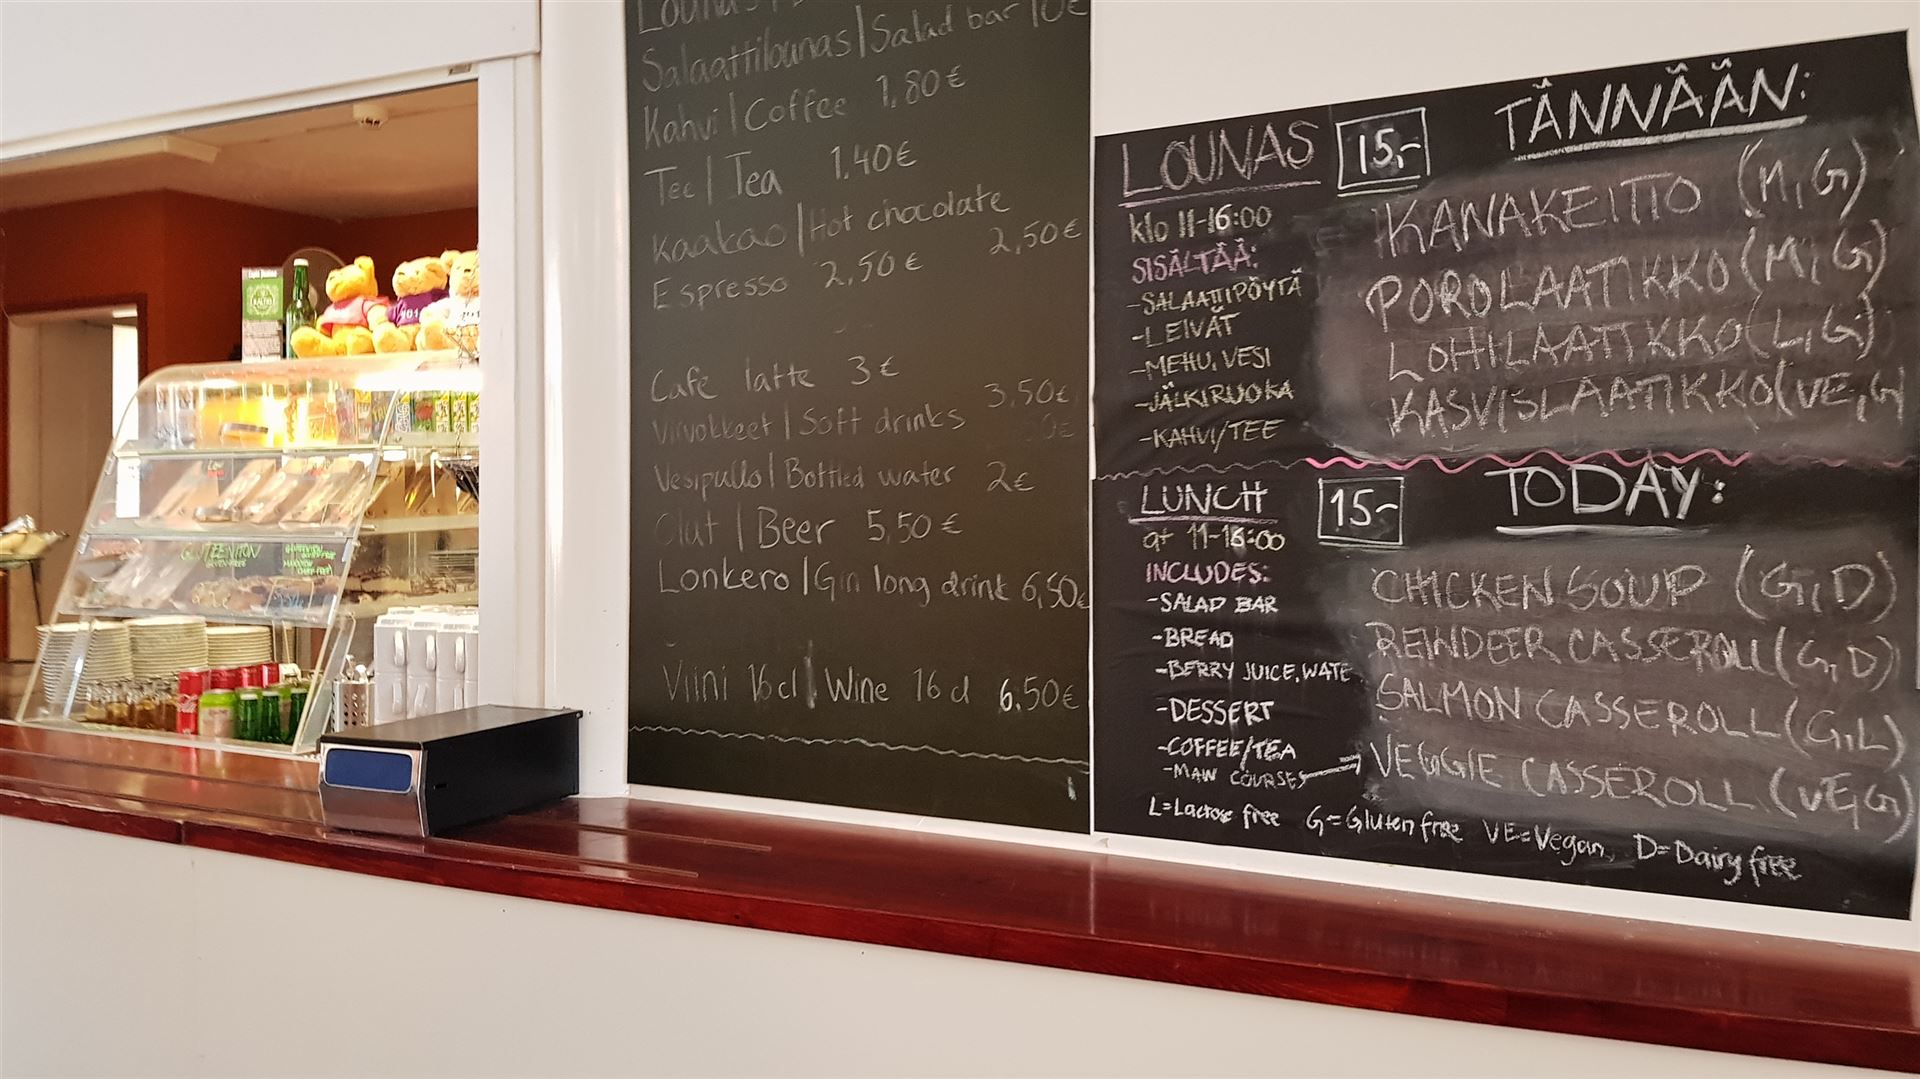 Salaattilounas | Salad bar 10€
Kahvi | Coffee 1,80€
Tee | Tea 1.40€
Kaakao | Hot chocolate 2,50€
Espresso 2,50€
Cafe latte 3€
Virvokkeet | Soft drinks 3,50€
Vesipullo | Bottled water 2€
Olut | Beer 5,50€
Lonkero | Gin long drink 6,50€
Viini 16cl | Wine 16cl 6.50€
LOUNAS 15,-
klo 11-16:00
SISÄLTÄÄ:
-SALAATTIPÖYTÄ
-LEIVÄT
-MEHU, VESI
-JÄLKIRUOKA
-KAHVI/TEE
TÄNNÄÄN:
KANAKEITTO (M,G)
POROLAATIKKO (M,G)
LOHILAATIKKO (L,G)
KASVISLAATIKKO (VE,G)
LUNCH 15-
at 11-16:00
INCLUDES:
-SALAD BAR
-BREAD
-BERRY JUICE, WATE
-DESSERT
-COFFEE/TEA
-MAIN COURSES
TODAY:
CHICKEN SOUP (G,D)
REINDEER CASSEROLL (G,D)
SALMON CASSEROLL (G,L)
VEGGIE CASSEROLL (VE,G)
L=Lactose free G=Gluten free VE=Vegan, D=Dairy free
GLUTEENITON